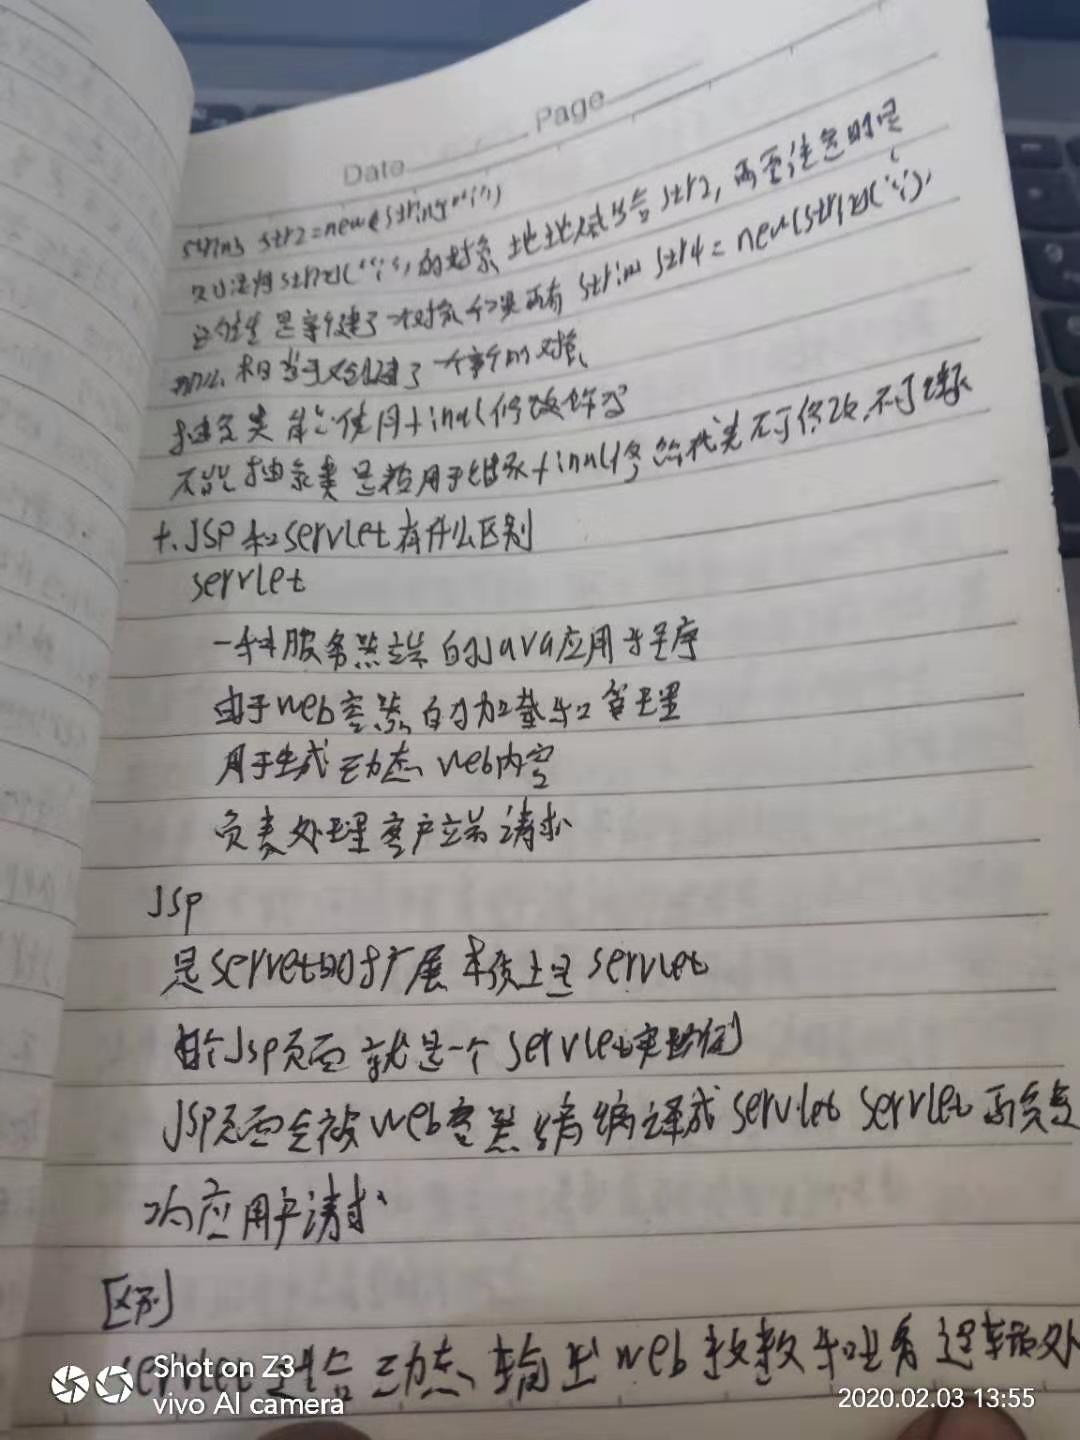 Date Page
str2=new String("i")
的对象 地址赋给str2, 需要注意的是
是 建了 对象 如果再有 String str4 = new String("i")
相当于又创建了一个新的对象
抽象类能使用final修饰吗
不能 抽象类是被用于继承 final修饰代表不可修改,不可继承
十.JSP和servlet有什么区别
servlet
一种服务器端的Java应用程序
由于web容器的加载和管理
用于生成动态web内容
负责处理客户端请求
JSP
是servet的扩展 本质上是servlet
每个Jsp页面就是一个servlet实例
JSP页面会被web容器编译成servlet servlet再负责
响应用户请求
区别
servlet适合动态输出web数据和业务逻辑处
Shot on Z3
vivo AI camera
2020.02.03 13:55